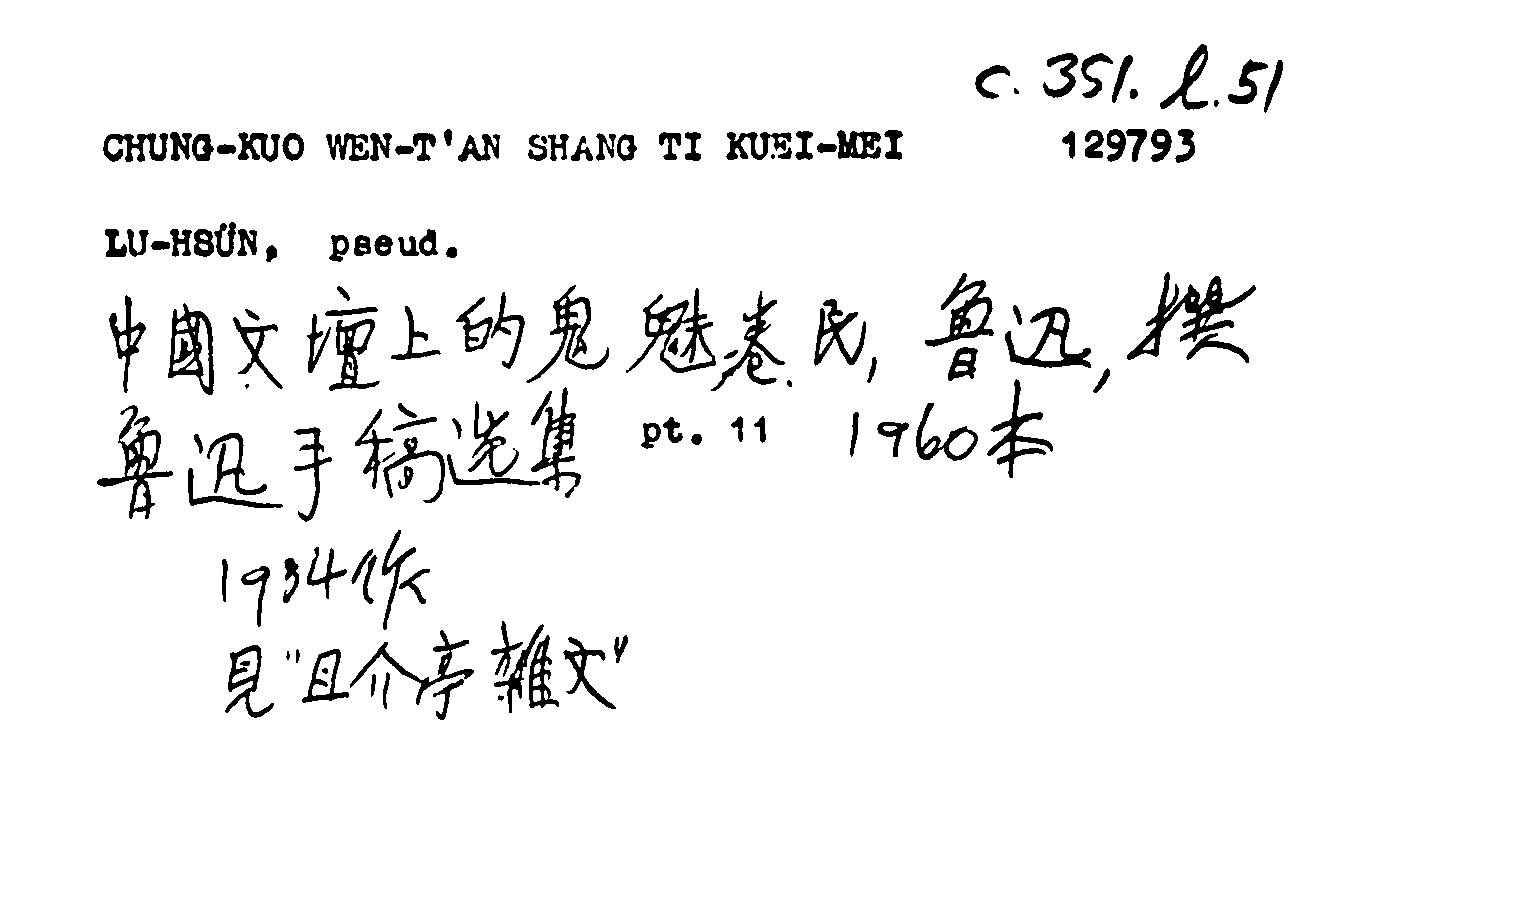 c. 351. l. 51
CHUNG-KUO WEN-T'AN SHANG TI KUEI-MEI 129793
LU-HSÜN, pseud.
中國文壇上的鬼魅 卷. 民, 魯迅, 撰
魯迅手稿选集 pt. 11 1960本
1934作
見"且介亭雜文"